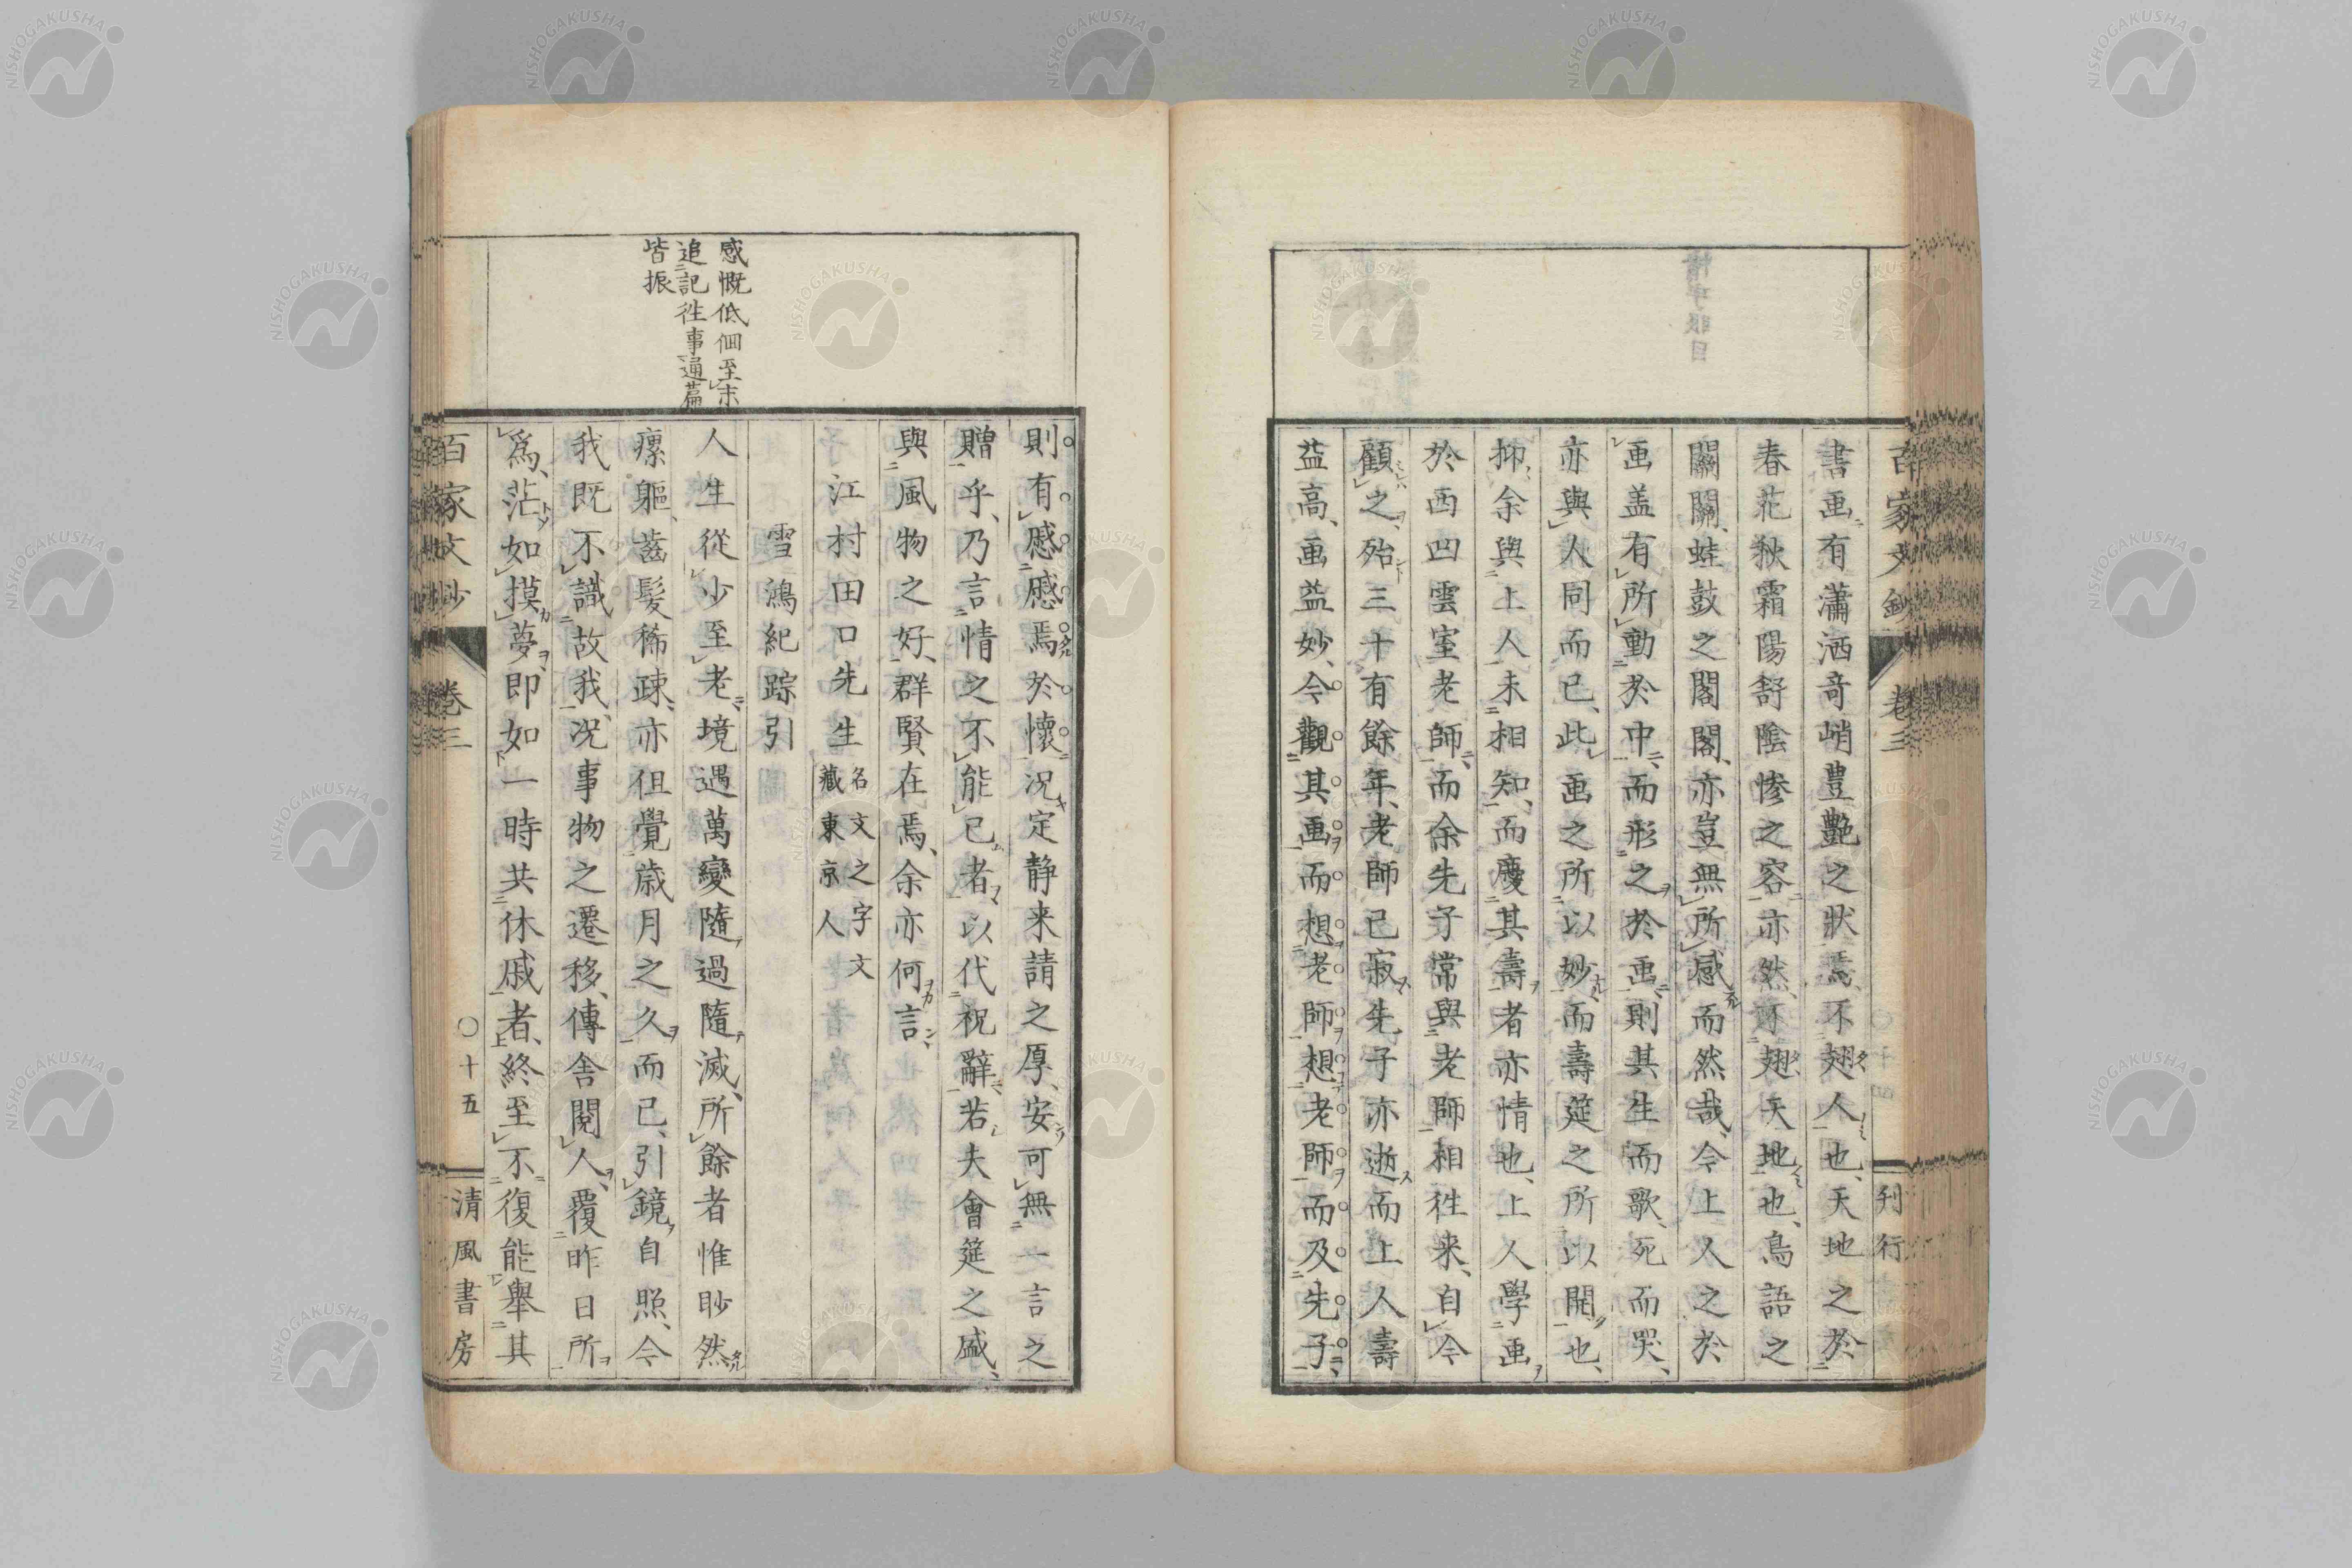 百家文鈔 卷三 刊行
書画有瀟洒竒峭豊艶之狀焉、不翅人也、天地之於
春花秋霜陽舒陰惨之容、亦然、不翅天地也、鳥語之
關關、蛙鼓之閣閣、亦豈無所感而然哉、今上人之於
画盖有所動於中、而形之於画、則其生而歌、死而哭、
亦與人同而已、此画之所以妙而壽筵之所以開也、
抑余與上人未相知、而慶其壽者亦情也、上人學画
於西凹雲室老師、而余先子常與老師相徃来、自今
顧之、殆三十有餘年、老師已寂先子亦逝而上人壽
益高、画益妙、今觀其画而想老師想老師而及先子、
感慨低佪至末
追記徃事通篇
皆振
則有慼慼焉於懷况定静来請之厚、安可無一言之
贈乎、乃言情之不能已者以代祝辭、若夫會筵之盛、
與風物之好、群賢在焉、余亦何言、
江村田口先生 名文之字文
藏東京人
雪鴻紀踪引
人生從少至老、境遇萬變隨過隨滅、所餘者惟眇然
瘰軀、齒髪稀疎、亦徂覺歳月之久而已、引鏡自照、今
我既不識故我、况事物之遷移、傳舎閲人、覆昨日所
爲、茫如摸夢、即如一時共休戚者、終至不復能舉其
百家文鈔 卷三 〇十五 清風書房